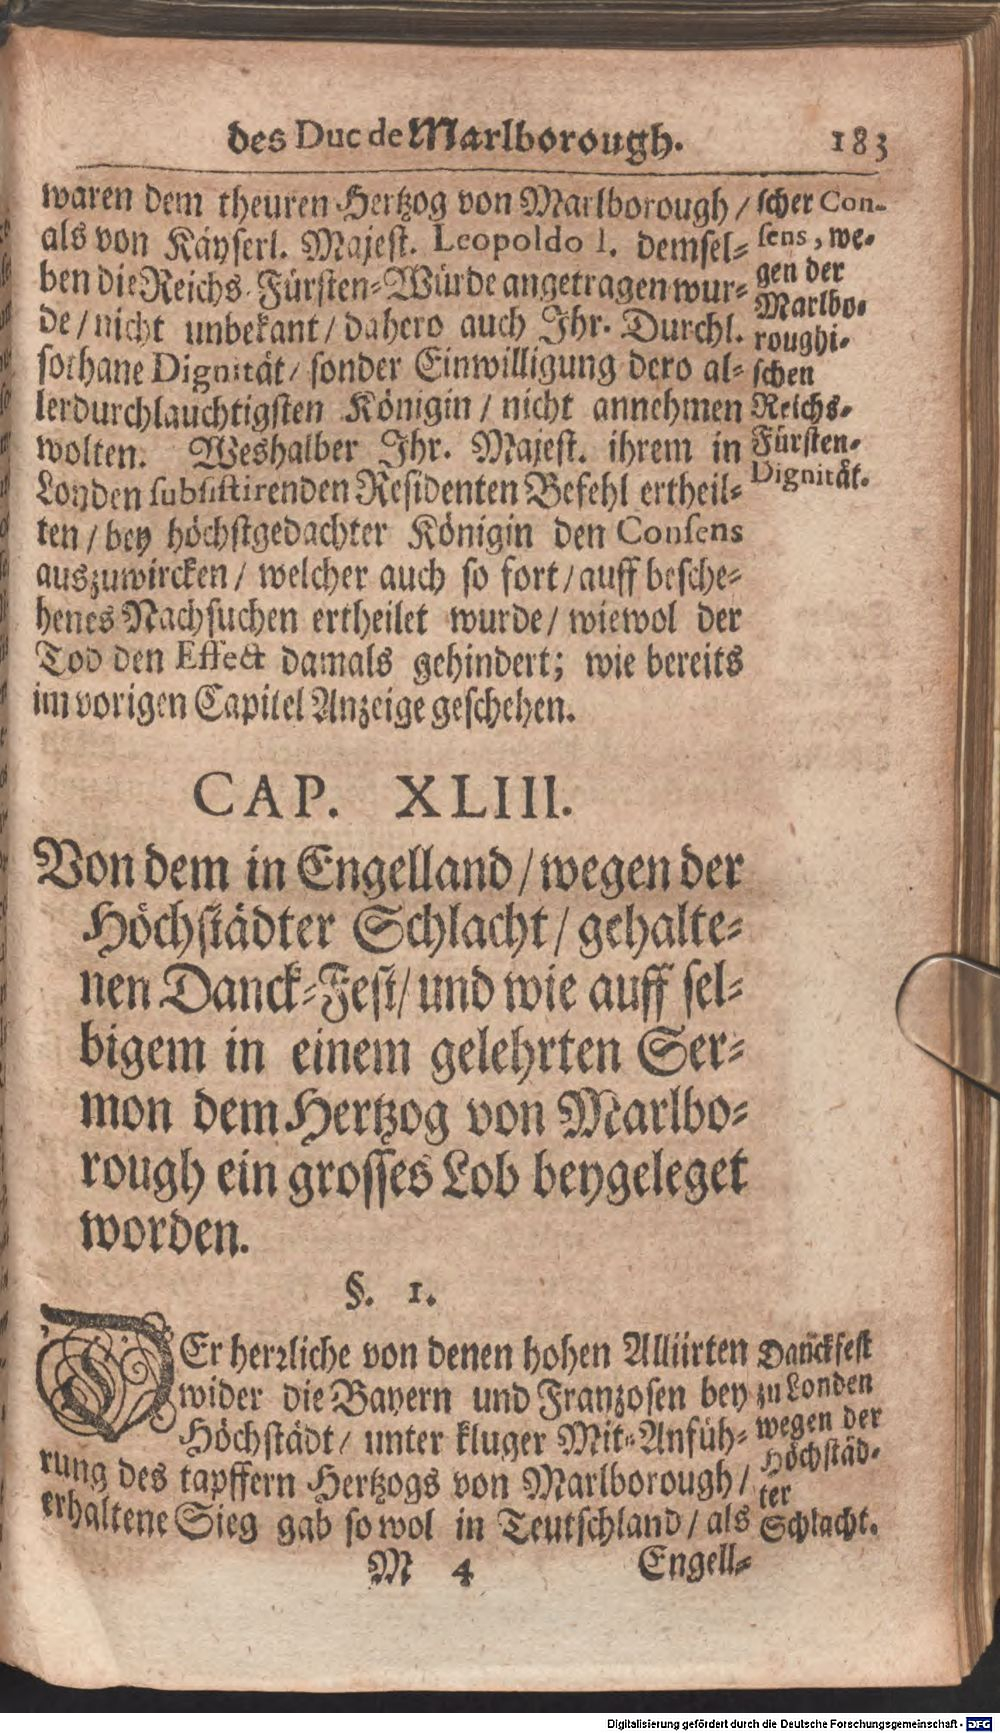 des Duc de Marlborough. 183
waren dem theuren Hertzog von Marlborough /
als von Käyserl. Majest. Leopoldo I. demsel-
ben die Reichs-Fürsten-Würde angetragen wur-
de / nicht unbekant / dahero auch Ihr. Durchl.
sothane Dignität / sonder Einwilligung dero al-
lerdurchlauchtigsten Königin / nicht annehmen
wolten. Weshalber Ihr. Majest. ihrem in
Londen subsistirenden Residenten Befehl ertheil-
ten / bey höchstgedachter Königin den Consens
auszuwircken / welcher auch so fort / auff besche-
henes Nachsuchen ertheilet wurde / wiewol der
Tod den Effect damals gehindert; wie bereits
im vorigen Capitel Anzeige geschehen.
scher Con-
sens, we-
gen der
Marlbo-
roughi-
schen
Reichs-
Fürsten-
Dignität.
CAP. XLIII.
Von dem in Engelland / wegen der
Höchstädter Schlacht / gehalte-
nen Danck-Fest / und wie auff sel-
bigem in einem gelehrten Ser-
mon dem Hertzog von Marlbo-
rough ein grosses Lob beygeleget
worden.
§. 1.
DEr herrliche von denen hohen Alliirten
wider die Bayern und Franzosen bey
Höchstädt / unter kluger Mit-Anfüh-
rung des tapffern Hertzogs von Marlborough /
erhaltene Sieg gab so wol in Teutschland / als
Danckfest
zu Londen
wegen der
Höchstäd-
ter
Schlacht.
M 4 Engell-
Digitalisierung gefördert durch die Deutsche Forschungsgemeinschaft - DFG